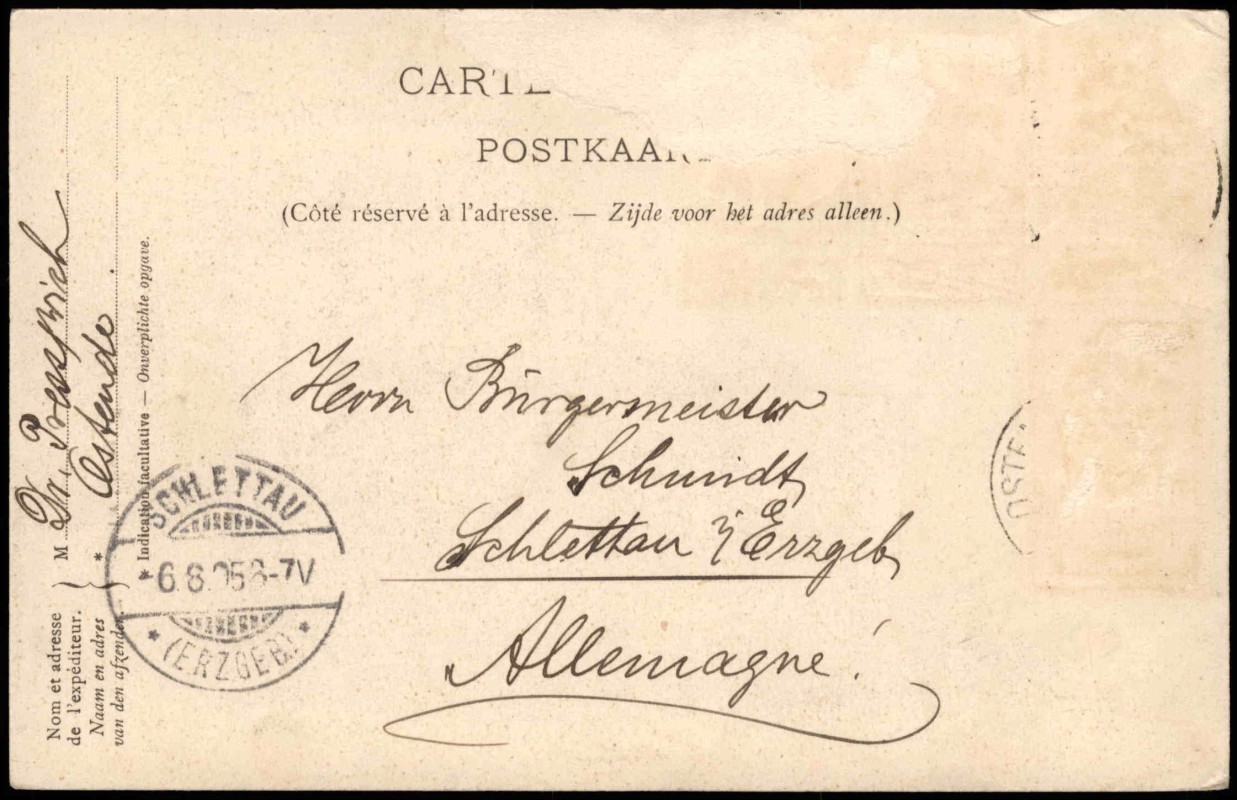 CARTE
POSTKAAR
(Côté réservé à l'adresse. — Zijde voor het adres alleen.)
Herrn Bürgermeister
Schmidt
Schlettau i/Erzgeb
Allemagne!
Nom et adresse
de l'expéditeur.
Naam en adres
van den afzender.
M Dr.
Ostende
* Indication facultative — Onverplichte opgave.
SCHLETTAU
*6.8.05 6-7V
* (ERZGEB.) *
OSTE